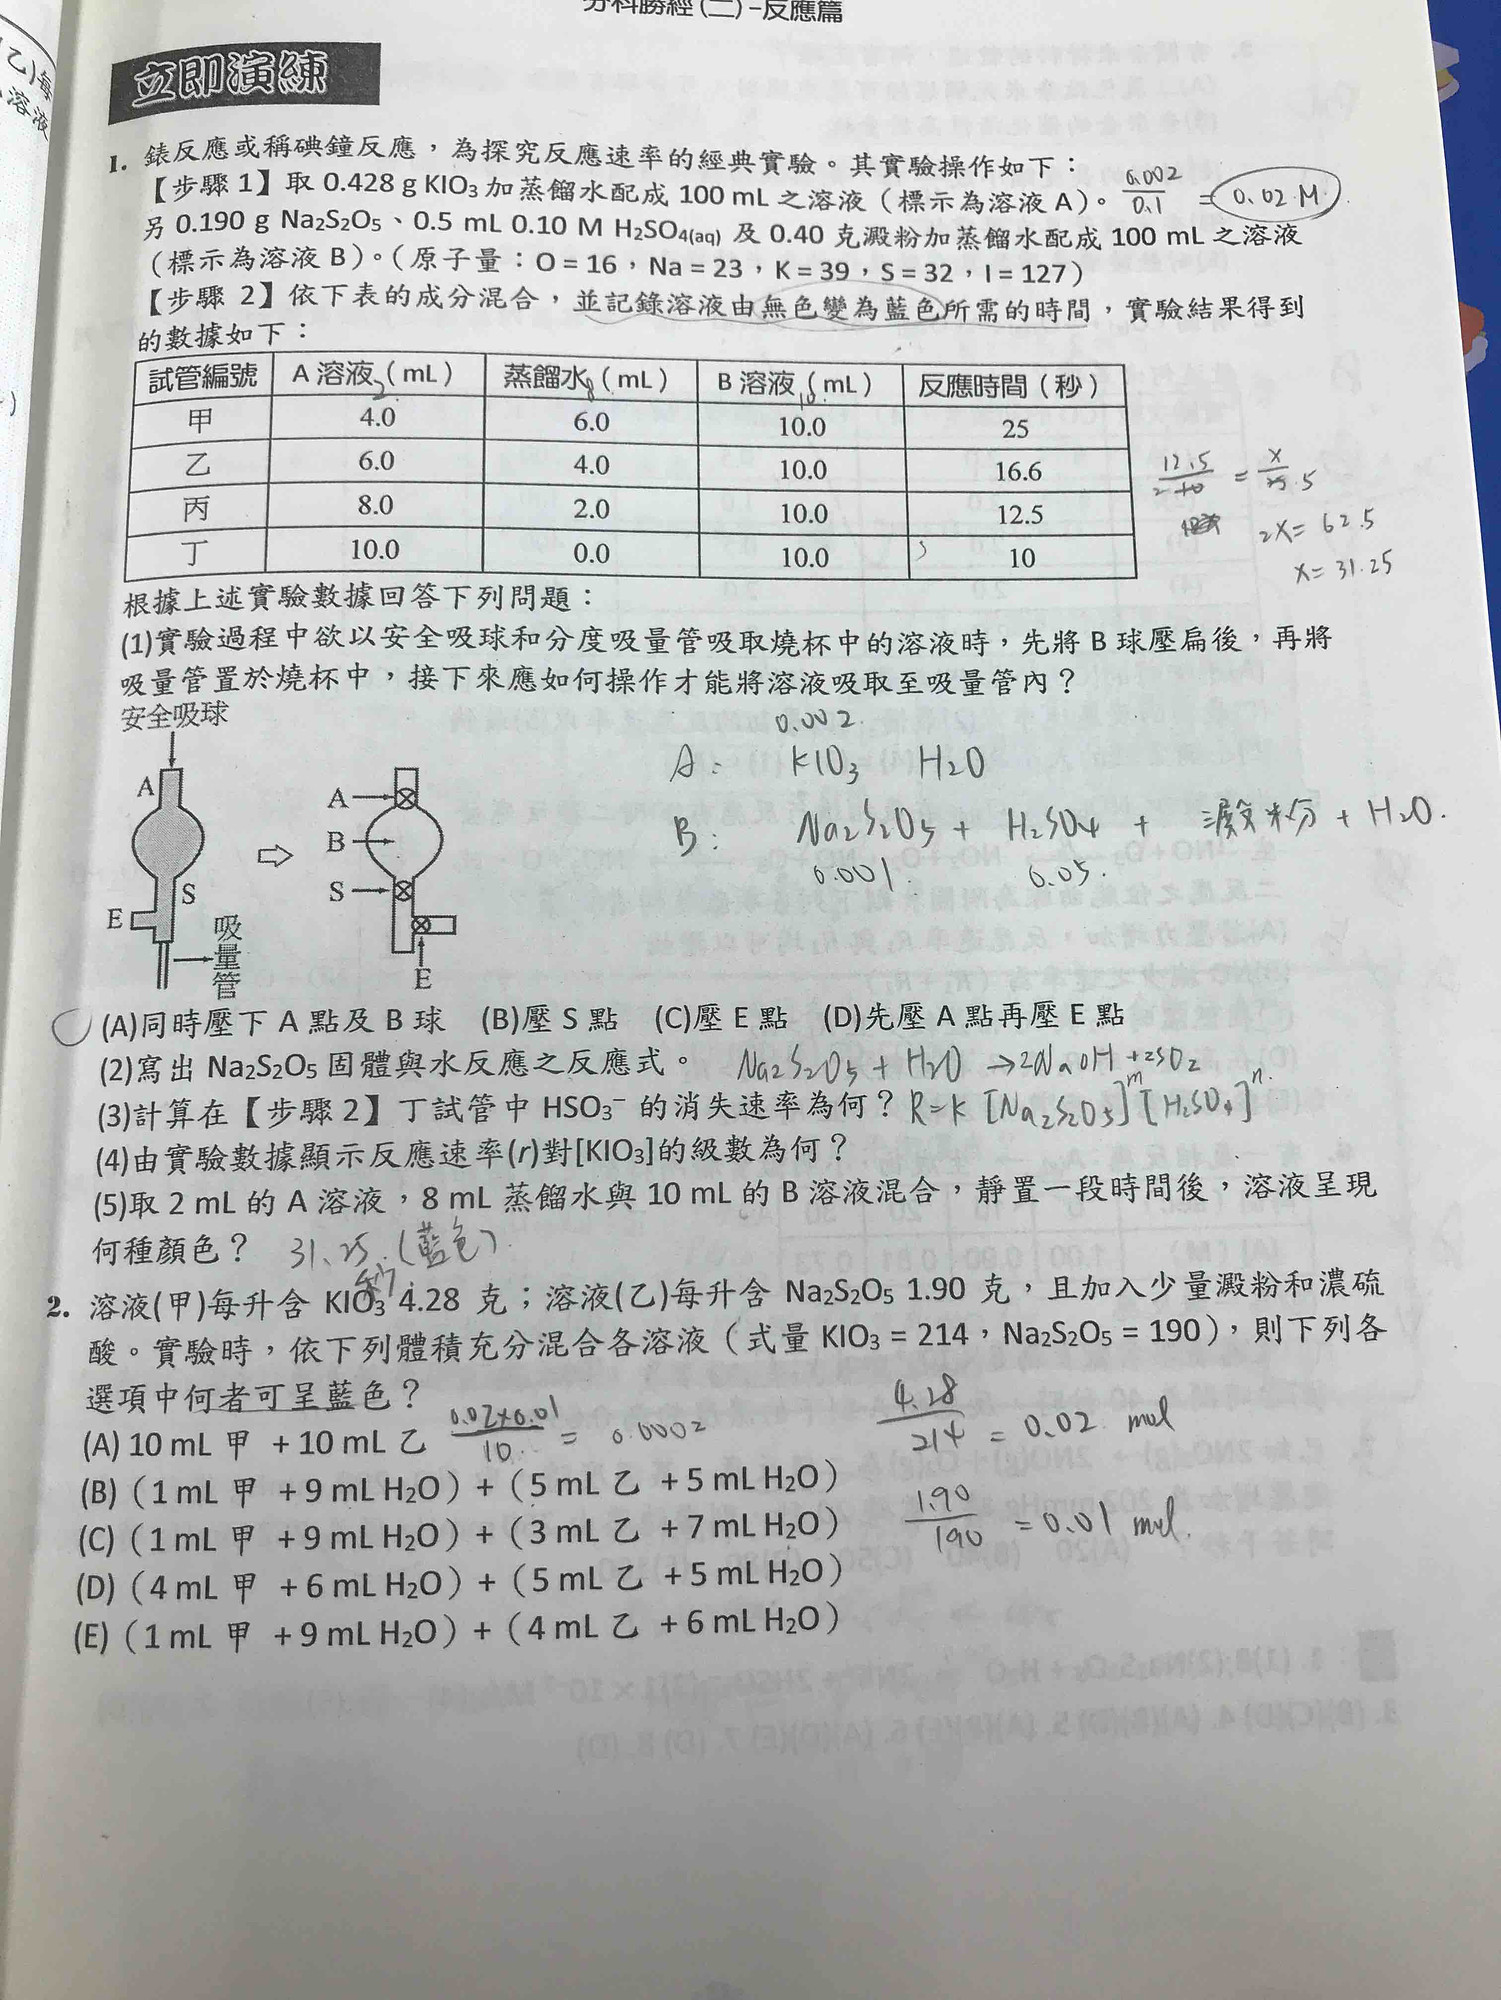 分科勝經(二)-反應篇
乙)每
溶液
立即演練
1. 錶反應或稱碘鐘反應，為探究反應速率的經典實驗。其實驗操作如下：
【步驟 1】取 0.428 g KIO3 加蒸餾水配成 100 mL 之溶液（標示為溶液 A）。 0.002/0.1 = 0.02 M
另 0.190 g Na2S2O5、0.5 mL 0.10 M H2SO4(aq) 及 0.40 克澱粉加蒸餾水配成 100 mL 之溶液
（標示為溶液 B）。（原子量：O = 16，Na = 23，K = 39，S = 32，I = 127）
【步驟 2】依下表的成分混合，並記錄溶液由無色變為藍色所需的時間，實驗結果得到
的數據如下：
試管編號 A 溶液（mL） 蒸餾水（mL） B 溶液（mL） 反應時間（秒）
2 8 10
甲 4.0 6.0 10.0 25
乙 6.0 4.0 10.0 16.6
丙 8.0 2.0 10.0 12.5
丁 10.0 0.0 10.0 10
12.5 = x
2 5
2x = 62.5
x = 31.25
根據上述實驗數據回答下列問題：
(1)實驗過程中欲以安全吸球和分度吸量管吸取燒杯中的溶液時，先將 B 球壓扁後，再將
吸量管置於燒杯中，接下來應如何操作才能將溶液吸取至吸量管內？
安全吸球
A
S
E
吸量管
A
B
S
E
0.002
A： KIO3 H2O
B： Na2S2O5 + H2SO4 + 澱粉 + H2O.
0.001 0.05
(A)同時壓下 A 點及 B 球 (B)壓 S 點 (C)壓 E 點 (D)先壓 A 點再壓 E 點
(2)寫出 Na2S2O5 固體與水反應之反應式。 Na2S2O5 + H2O → 2NaOH + 2SO2
(3)計算在【步驟 2】丁試管中 HSO3⁻ 的消失速率為何？ R = K [Na2S2O5]^m [H2SO4]^n
(4)由實驗數據顯示反應速率(r)對[KIO3]的級數為何？
(5)取 2 mL 的 A 溶液，8 mL 蒸餾水與 10 mL 的 B 溶液混合，靜置一段時間後，溶液呈現
何種顏色？ 31.25 秒 (藍色)
2. 溶液(甲)每升含 KIO3 4.28 克；溶液(乙)每升含 Na2S2O5 1.90 克，且加入少量澱粉和濃硫
酸。實驗時，依下列體積充分混合各溶液（式量 KIO3 = 214，Na2S2O5 = 190），則下列各
選項中何者可呈藍色？
(A) 10 mL 甲 + 10 mL 乙 0.02×0.01/10 = 0.0002
4.28/214 = 0.02 mol
(B)（1 mL 甲 + 9 mL H2O）+（5 mL 乙 + 5 mL H2O）
(C)（1 mL 甲 + 9 mL H2O）+（3 mL 乙 + 7 mL H2O） 1.90/190 = 0.01 mol.
(D)（4 mL 甲 + 6 mL H2O）+（5 mL 乙 + 5 mL H2O）
(E)（1 mL 甲 + 9 mL H2O）+（4 mL 乙 + 6 mL H2O）